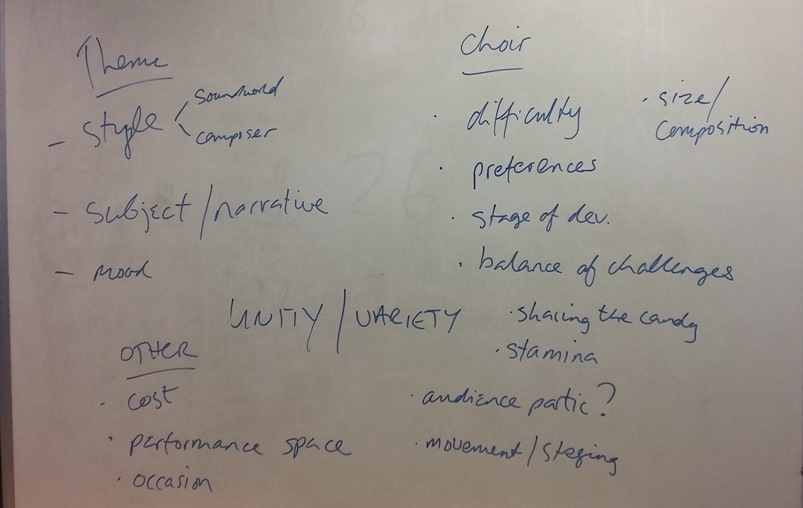 Theme
- style
soundworld
composer
- subject/narrative
- mood
Choir
· difficulty
· size/
composition
· preferences
· stage of dev.
· balance of challenges
· sharing the candy
· stamina
UNITY/VARIETY
OTHER
· cost
· performance space
· occasion
· audience partic?
· movement/staging